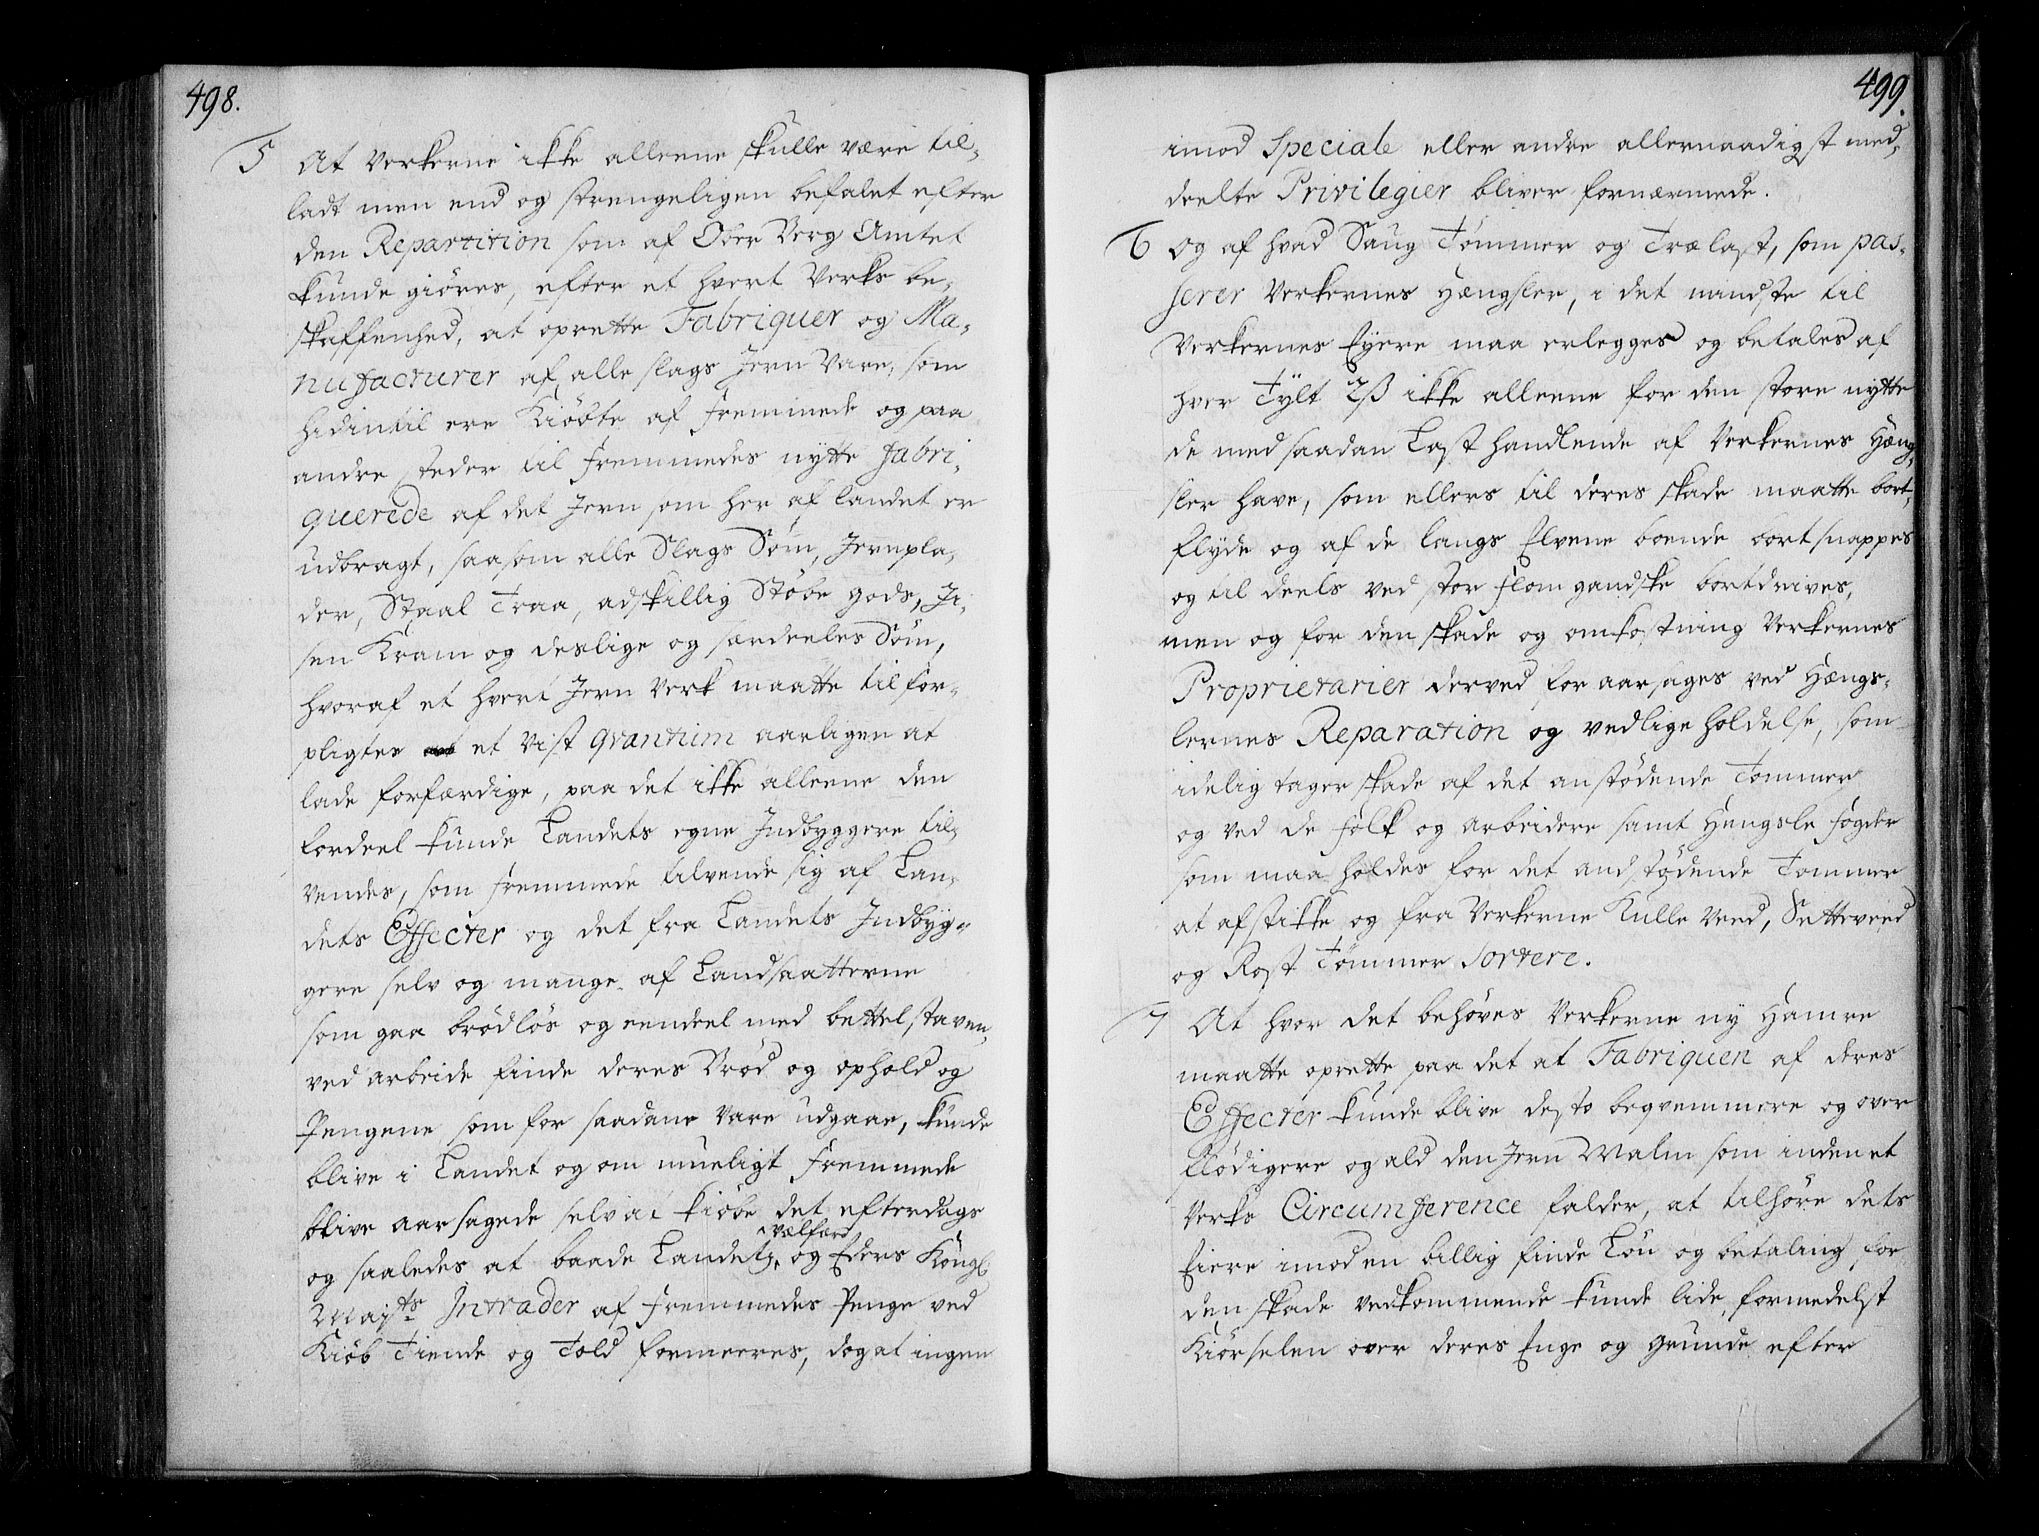 498.
5 At Verkerne ikke alleene skulle være til-
ladt men end og strengeligen befalet efter
den Repartition som af Ober Berg Amtet
kunde giøres, efter et hvert Verks be-
skaffenhed, at oprette Fabriquer og Ma-
nufacturer af alle slags Jern Vare, som
hidintil ere Kiøbte af fremmede og paa
andre steder til fremmedes nytte fabri-
querede af det Jern som her af landet er
udbragt, saasom alle Slags Søm, Jernpla-
der, Staal Traa, adskillig Støbe gods, Ji-
sen Kram og deslige og særdeeles Søm,
hvoraf et hvert Jern Verk maatte tilfor-
pligtes et vist qvantum aarligen at
lade forfærdige, paa det ikke alleene den
fordeel kunde Landets egne Indbyggere til-
vendes, som fremmede tilvende sig af Lan-
dets Effecter og det fra Landets Indbyg-
gere selv og mange af Landsaatterne
som gaa brødløs og eendeel med bettelstaven,
ved arbeide finde deres Brød og ophold og
Pengene som for saadane Vare udgaae, kunde
blive i Landet og om mueligt fremmede
blive aarsagede selv at kiøbe det efterdags
og saaledes at baade Landets vælfærd og Eders Kongl.
Mayts Intrader af fremmedes Penge ved
Kiøb Tiende og Told formeeres, dog at ingen
499.
imod Speciale eller andre allernaadigst med-
deelte Privilegier bliver fornærmede.
6 Og af hvad Saug Tømmer og Trælast, som pas-
serer Verkernes Hængsler, i det mindste til
Verkernes Eyere maa erlegges og betales af
hver Tylt 2ß ikke alleene for den store nytte
de med saadan Last handlende af Verkernes Hæng-
sler have, som ellers til deres skade maatte bort-
flyde og af de langs Elvene boende bortsnappes
og til deels ved stor flom gandske bortdrives,
men og for den skade og omkostning Verkernes
Proprietarier derved foraarsages ved Hængs-
lernes Reparation og vedligeholdelse, som
idelig tager skade af det anstødende Tømmer
og ved de folk og arbeidere samt Hengsle fogder
som maa holdes for det andstødende Tømmer
at afstikke og fra Verkerne Kulle Veed, Setteveed
og Rost Tømmer sortere.
7 At hvor det behøves Verkerne ny Hamre
maatte oprette paa det at Fabriquen af deres
Effecter kunde blive desto beqvemmere og over
flødigere og ald den Jern Malm som inden et
Verks Circumference falder, at tilhøre dets
Eiere imod en billig finde Løn og betaling for
den skade vedkommende kunde lide, formedelst
Kiørselen over deres Enge og grunde efter